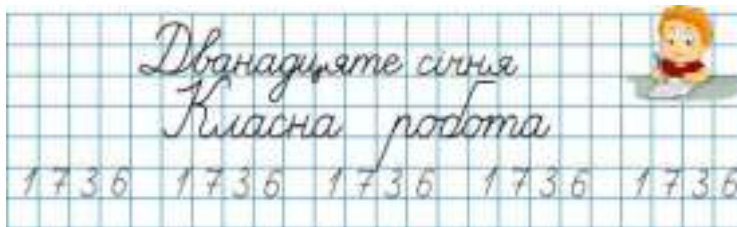 Дванадцяте січня
Класна робота
1 7 3 6 1 7 3 6 1 7 3 6 1 7 3 6 1 7 3 6